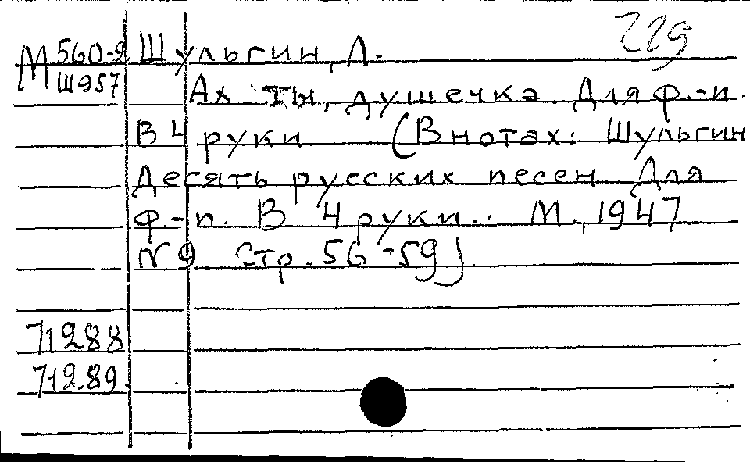 229
М 560-9 Шульгин, Л.
Ш957 Ах ты, душечка. Для ф.-п.
В 4 руки (В нотах: Шульгин
Десять русских песен. Для
ф.-п. В 4 руки.. М., 1947
N 9 Стр. 56-59)
71288
71289